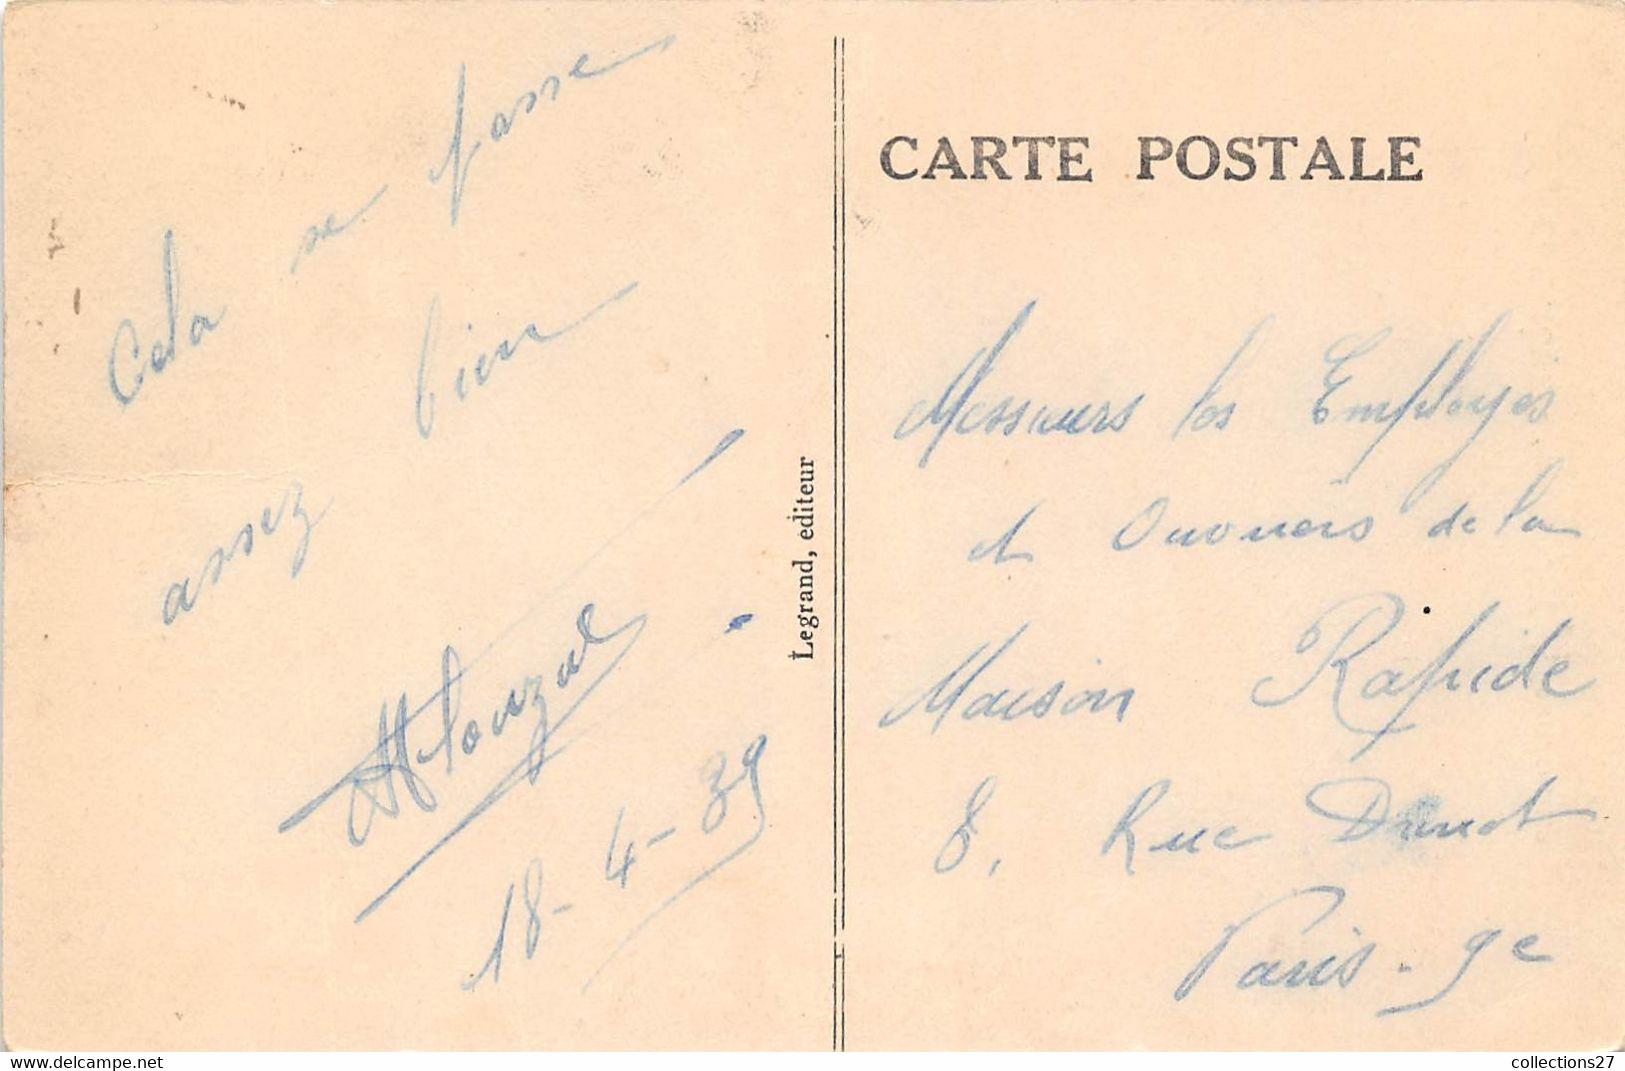 Cela se passe
assez bien
18-4-39
Legrand, éditeur
CARTE POSTALE
Messieurs les Employés
et Ouvriers de la
Maison Rapide
8, Rue Drouot
Paris. 9e
collections27